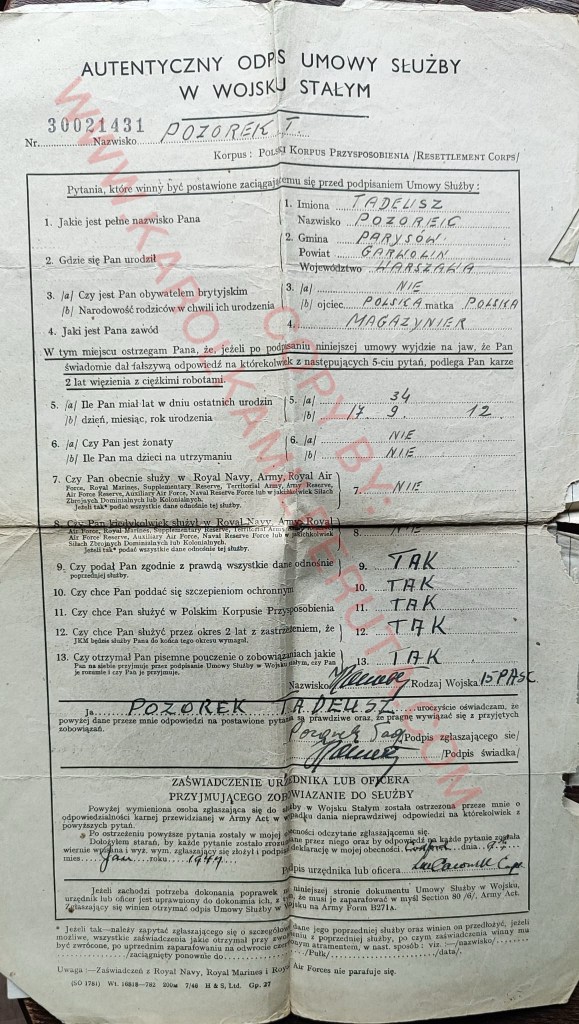 AUTENTYCZNY ODPIS UMOWY SŁUŻBY
W WOJSKU STAŁYM
Nr. 30021431 Nazwisko POZOREK T.
Korpus: POLSKI KORPUS PRZYSPOSOBIENIA /RESETTLEMENT CORPS/
Pytania, które winny być postawione zaciągającemu się przed podpisaniem Umowy Służby:
1. Jakie jest pełne nazwisko Pana
1. Imiona TADEUSZ
Nazwisko POZOREK
2. Gdzie się Pan urodził
2. Gmina PARYSÓW
Powiat GARWOLIN
Województwo WARSZAWA
3. /a/ Czy jest Pan obywatelem brytyjskim
3. /a/ NIE
/b/ Narodowość rodziców w chwili ich urodzenia
/b/ ojciec POLSKA matka POLSKA
4. Jaki jest Pana zawód
4. MAGAZYNIER
W tym miejscu ostrzegam Pana, że, jeżeli po podpisaniu niniejszej umowy wyjdzie na jaw, że Pan
świadomie dał fałszywą odpowiedź na którekolwiek z następujących 5-ciu pytań, podlega Pan karze
2 lat więzienia z ciężkimi robotami.
5. /a/ Ile Pan miał lat w dniu ostatnich urodzin
5. /a/ 34
/b/ dzień, miesiąc, rok urodzenia
/b/ 17 9 12
6. /a/ Czy Pan jest żonaty
6. /a/ NIE
/b/ Ile Pan ma dzieci na utrzymaniu
/b/ NIE
7. Czy Pan obecnie służy w Royal Navy, Army, Royal Air
Force, Royal Marines, Supplementary Reserve, Territorial Army, Army Reserve,
Air Force Reserve, Auxiliary Air Force, Naval Reserve Force lub w jakichkolwiek Siłach
Zbrojnych Dominialnych lub Kolonialnych.
Jeżeli tak* podać wszystkie dane odnośnie tej służby.
7. NIE
8. Czy Pan kiedykolwiek służył w Royal Navy, Army, Royal
Air Force, Royal Marines, Supplementary Reserve, Territorial Army
Air Force Reserve, Auxiliary Air Force, Naval Reserve Force lub w jakichkolwiek
Siłach Zbrojnych Dominialnych lub Kolonialnych.
Jeżeli tak* podać wszystkie dane odnośnie tej służby.
8. NIE
9. Czy podał Pan zgodnie z prawdą wszystkie dane odnośnie
poprzedniej służby.
9. TAK
10. Czy chce Pan poddać się szczepieniom ochronnym
10. TAK
11. Czy chce Pan służyć w Polskim Korpusie Przysposobienia
11. TAK
12. Czy chce Pan służyć przez okres 2 lat z zastrzeżeniem, że
JKM będzie służby Pana do końca tego okresu wymagał.
12. TAK
13. Czy otrzymał Pan pisemne pouczenie o zobowiązaniach jakie
Pan na siebie przyjmuje przez podpisanie Umowy Służby w Wojsku stałym, czy Pan
je rozumie i czy Pan je przyjmuje.
13. TAK
Nazwisko Rodzaj Wojska 15 PASC.
Ja POZOREK TADEUSZ uroczyście oświadczam, że
powyżej dane przeze mnie odpowiedzi na postawione pytania są prawdziwe oraz, że pragnę wywiązać się z przyjętych
zobowiązań.
Pozorek Tad /Podpis zgłaszającego się/
/Podpis świadka/
ZAŚWIADCZENIE URZĘDNIKA LUB OFICERA
PRZYJMUJĄCEGO ZOBOWIĄZANIE DO SŁUŻBY
Powyżej wymieniona osoba zgłaszająca się do służby w Wojsku Stałym została ostrzeżona przeze mnie o
odpowiedzialności karnej przewidzianej w Army Act w wypadku dania nieprawdziwej odpowiedzi na którekolwiek z
powyższych pytań.
Po ostrzeżeniu powyższe pytania zostały w mojej obecności odczytane zgłaszającemu się.
Dołożyłem starań, by każde pytanie zostało zrozumiane przez niego oraz by odpowiedź na każde pytanie została
wiernie wpisana i wyż. wym. zgłaszający się złożył i podpisał deklarację w mojej obecności dnia 9th
mies Jan roku 1947
Podpis urzędnika lub oficera
Jeżeli zachodzi potrzeba dokonania poprawek na niniejszej stronie dokumentu Umowy Służby w Wojsku,
urzędnik lub oficer jest uprawniony do dokonania ich, z tym, że musi je zaparafować w myśl Section 80 /6/, Army Act.
Zgłaszający się winien otrzymać odpis Umowy Służby w Wojsku na Army Form B271A.
* Jeżeli tak—należy zapytać zgłaszającego się o szczegółowe dane jego poprzedniej służby oraz winien on przedłożyć, jeżeli
możliwe, wszystkie zaświadczenia jakie otrzymał przy zwolnieniu z poprzedniej służby, po czym zaświadczenia winny mu
być zwrócone, po uprzednim zaparafowaniu na odwrocie czerwonym atramentem, w nast. sposób: viz. :—/nazwisko/
/zaciągnięty ponownie do /Pułk/ /data/.
Uwaga:—Zaświadczeń z Royal Navy, Royal Marines i Royal Air Forces nie parafuje się.
(SO 1781) Wt. 16818—762 200M 7/46 H & S, Ltd. Gp. 27
COPY BY:
WWW.KAROLKAMILPERUTA.COM